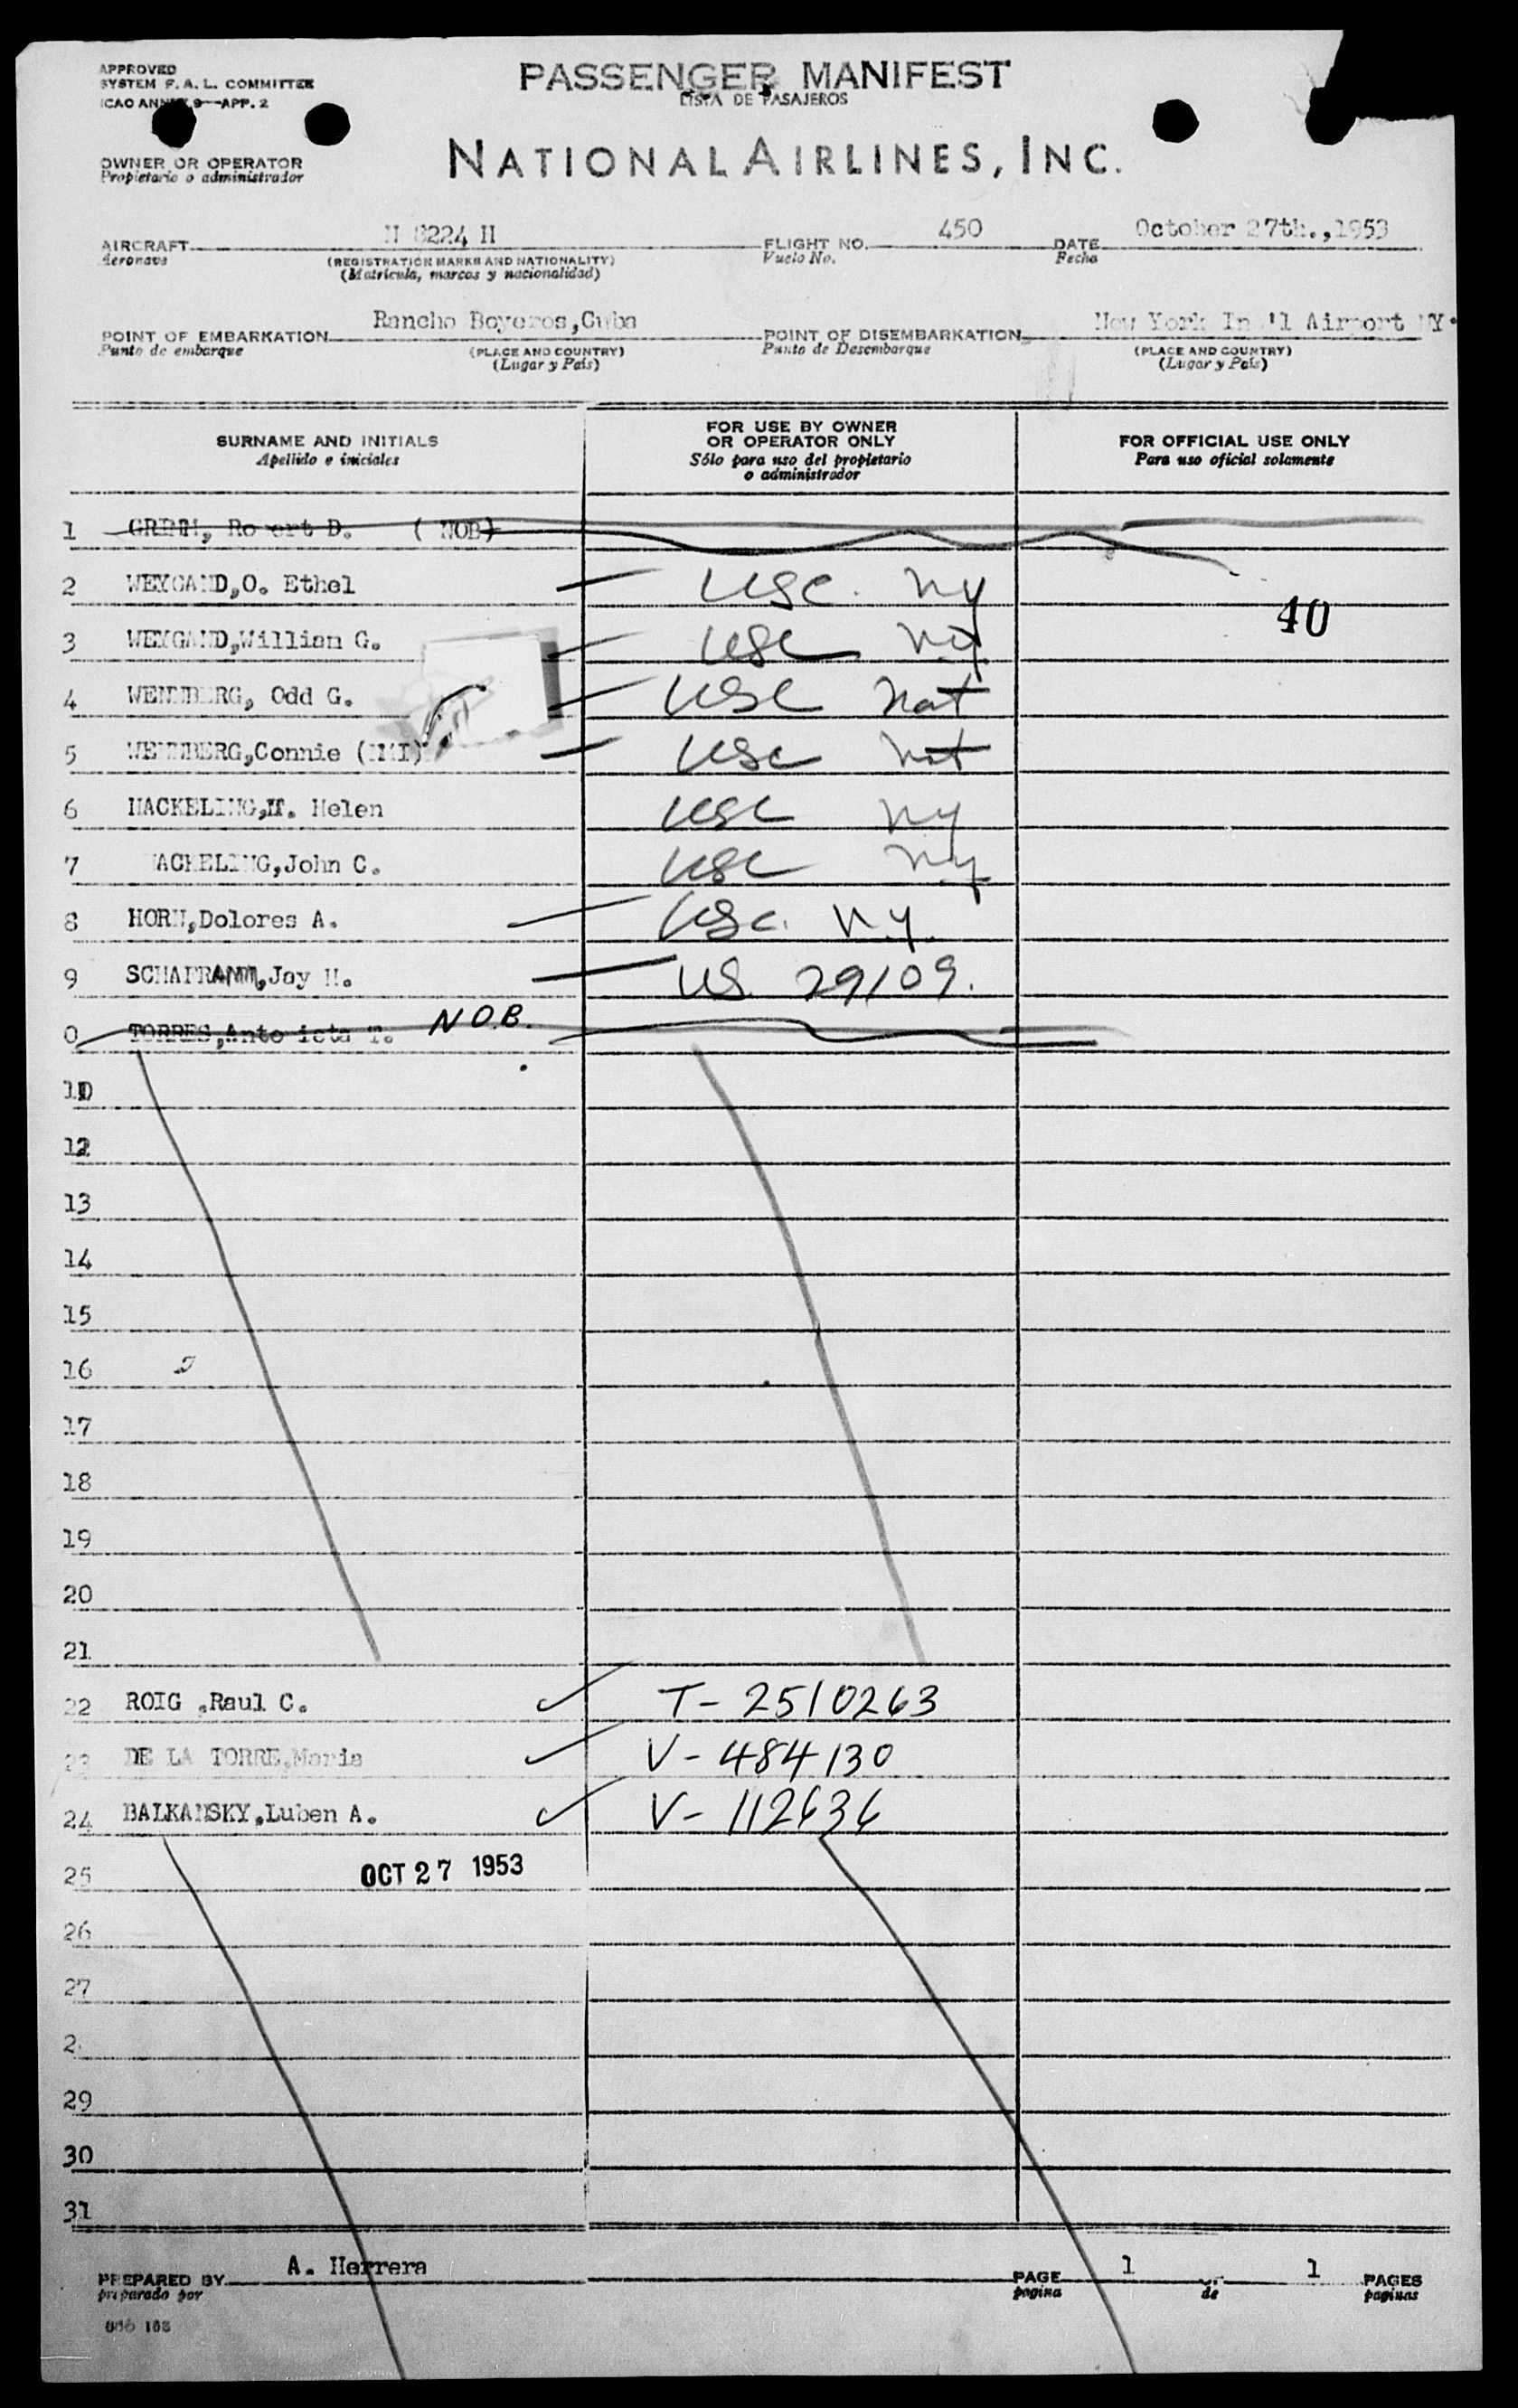 APPROVED
SYSTEM F. A. L. COMMITTEE
ICAO ANNEX 9—APP. 2
PASSENGER MANIFEST
LISTA DE PASAJEROS
OWNER OR OPERATOR
Propietario o administrador
NATIONAL AIRLINES, INC.
AIRCRAFT N 8224 H FLIGHT NO. 450 DATE October 27th.,1953
Aeronave (REGISTRATION MARKS AND NATIONALITY) Vuelo No. Fecha
(Matricula, marcas y nacionalidad)
POINT OF EMBARKATION Rancho Boyeros,Cuba POINT OF DISEMBARKATION New York In 'l Airport NY.
Punto de embarque (PLACE AND COUNTRY) Punto de Desembarque (PLACE AND COUNTRY)
(Lugar y País) (Lugar y País)
SURNAME AND INITIALS FOR USE BY OWNER OR OPERATOR ONLY FOR OFFICIAL USE ONLY
Apellido e iniciales Sólo para uso del propietario o administrador Para uso oficial solamente
1 Ro ert D. ( NOB)
2 WEYGAND,O. Ethel USC. NY
40
3 WEYGAND,William G. USC NY
4 WENNBERG, Odd G. USC Nat
5 WENNBERG,Connie (NMI) USC Nat
6 HACKELING,M. Helen USC NY
7 ACKELING,John C. USC NY
8 HORN,Dolores A. USC. NY.
9 Jay H. US 29109.
0 TORRES,Anto ieta T. N.O.B.
11
12
13
14
15
16
17
18
19
20
21
22 ROIG ,Raul C. T- 2510263
23 DE LA TORRE,Maria V- 484130
24 BALKANSKY,Luben A. V- 112636
25 OCT 27 1953
26
27
2
29
30
31
PREPARED BY A. Herrera PAGE 1 1 PAGES
preparado por pagina de paginas